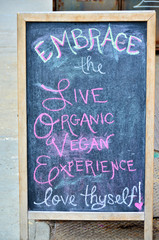 EMBRACE
the
LIVE
ORGANIC
VEGAN
EXPERIENCE
love thyself!